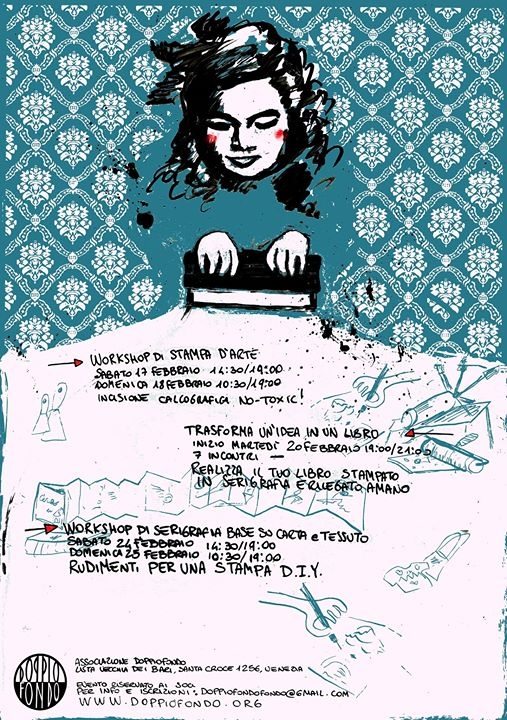 WORKSHOP DI STAMPA D'ARTE
SABATO 17 FEBBRAIO 14:30/19:00
DOMENICA 18 FEBBRAIO 10:30/19:00
INCISIONE CALCOGRAFICA NO-TOXIC!
TRASFORMA UN'IDEA IN UN LIBRO
INIZIO MARTEDÌ 20 FEBBRAIO 19:00/21:00
7 INCONTRI —
REALIZZA IL TUO LIBRO STAMPATO
IN SERIGRAFIA E RILEGATO A MANO
WORKSHOP DI SERIGRAFIA BASE SU CARTA e TESSUTO
SABATO 24 FEBBRAIO 14:30/19:00
DOMENICA 25 FEBBRAIO 10:30/19:00
RUDIMENTI PER UNA STAMPA D.I.Y.
DOPPIO
FONDO
ASSOCIAZIONE DOPPIOFONDO
LISTA VECCHIA DEI BARI, SANTA CROCE 1256, VENEZIA
EVENTO RISERVATO AI SOCI
PER INFO E ISCRIZIONI: DOPPIOFONDOFONDO@GMAIL.COM
WWW.DOPPIOFONDO.ORG